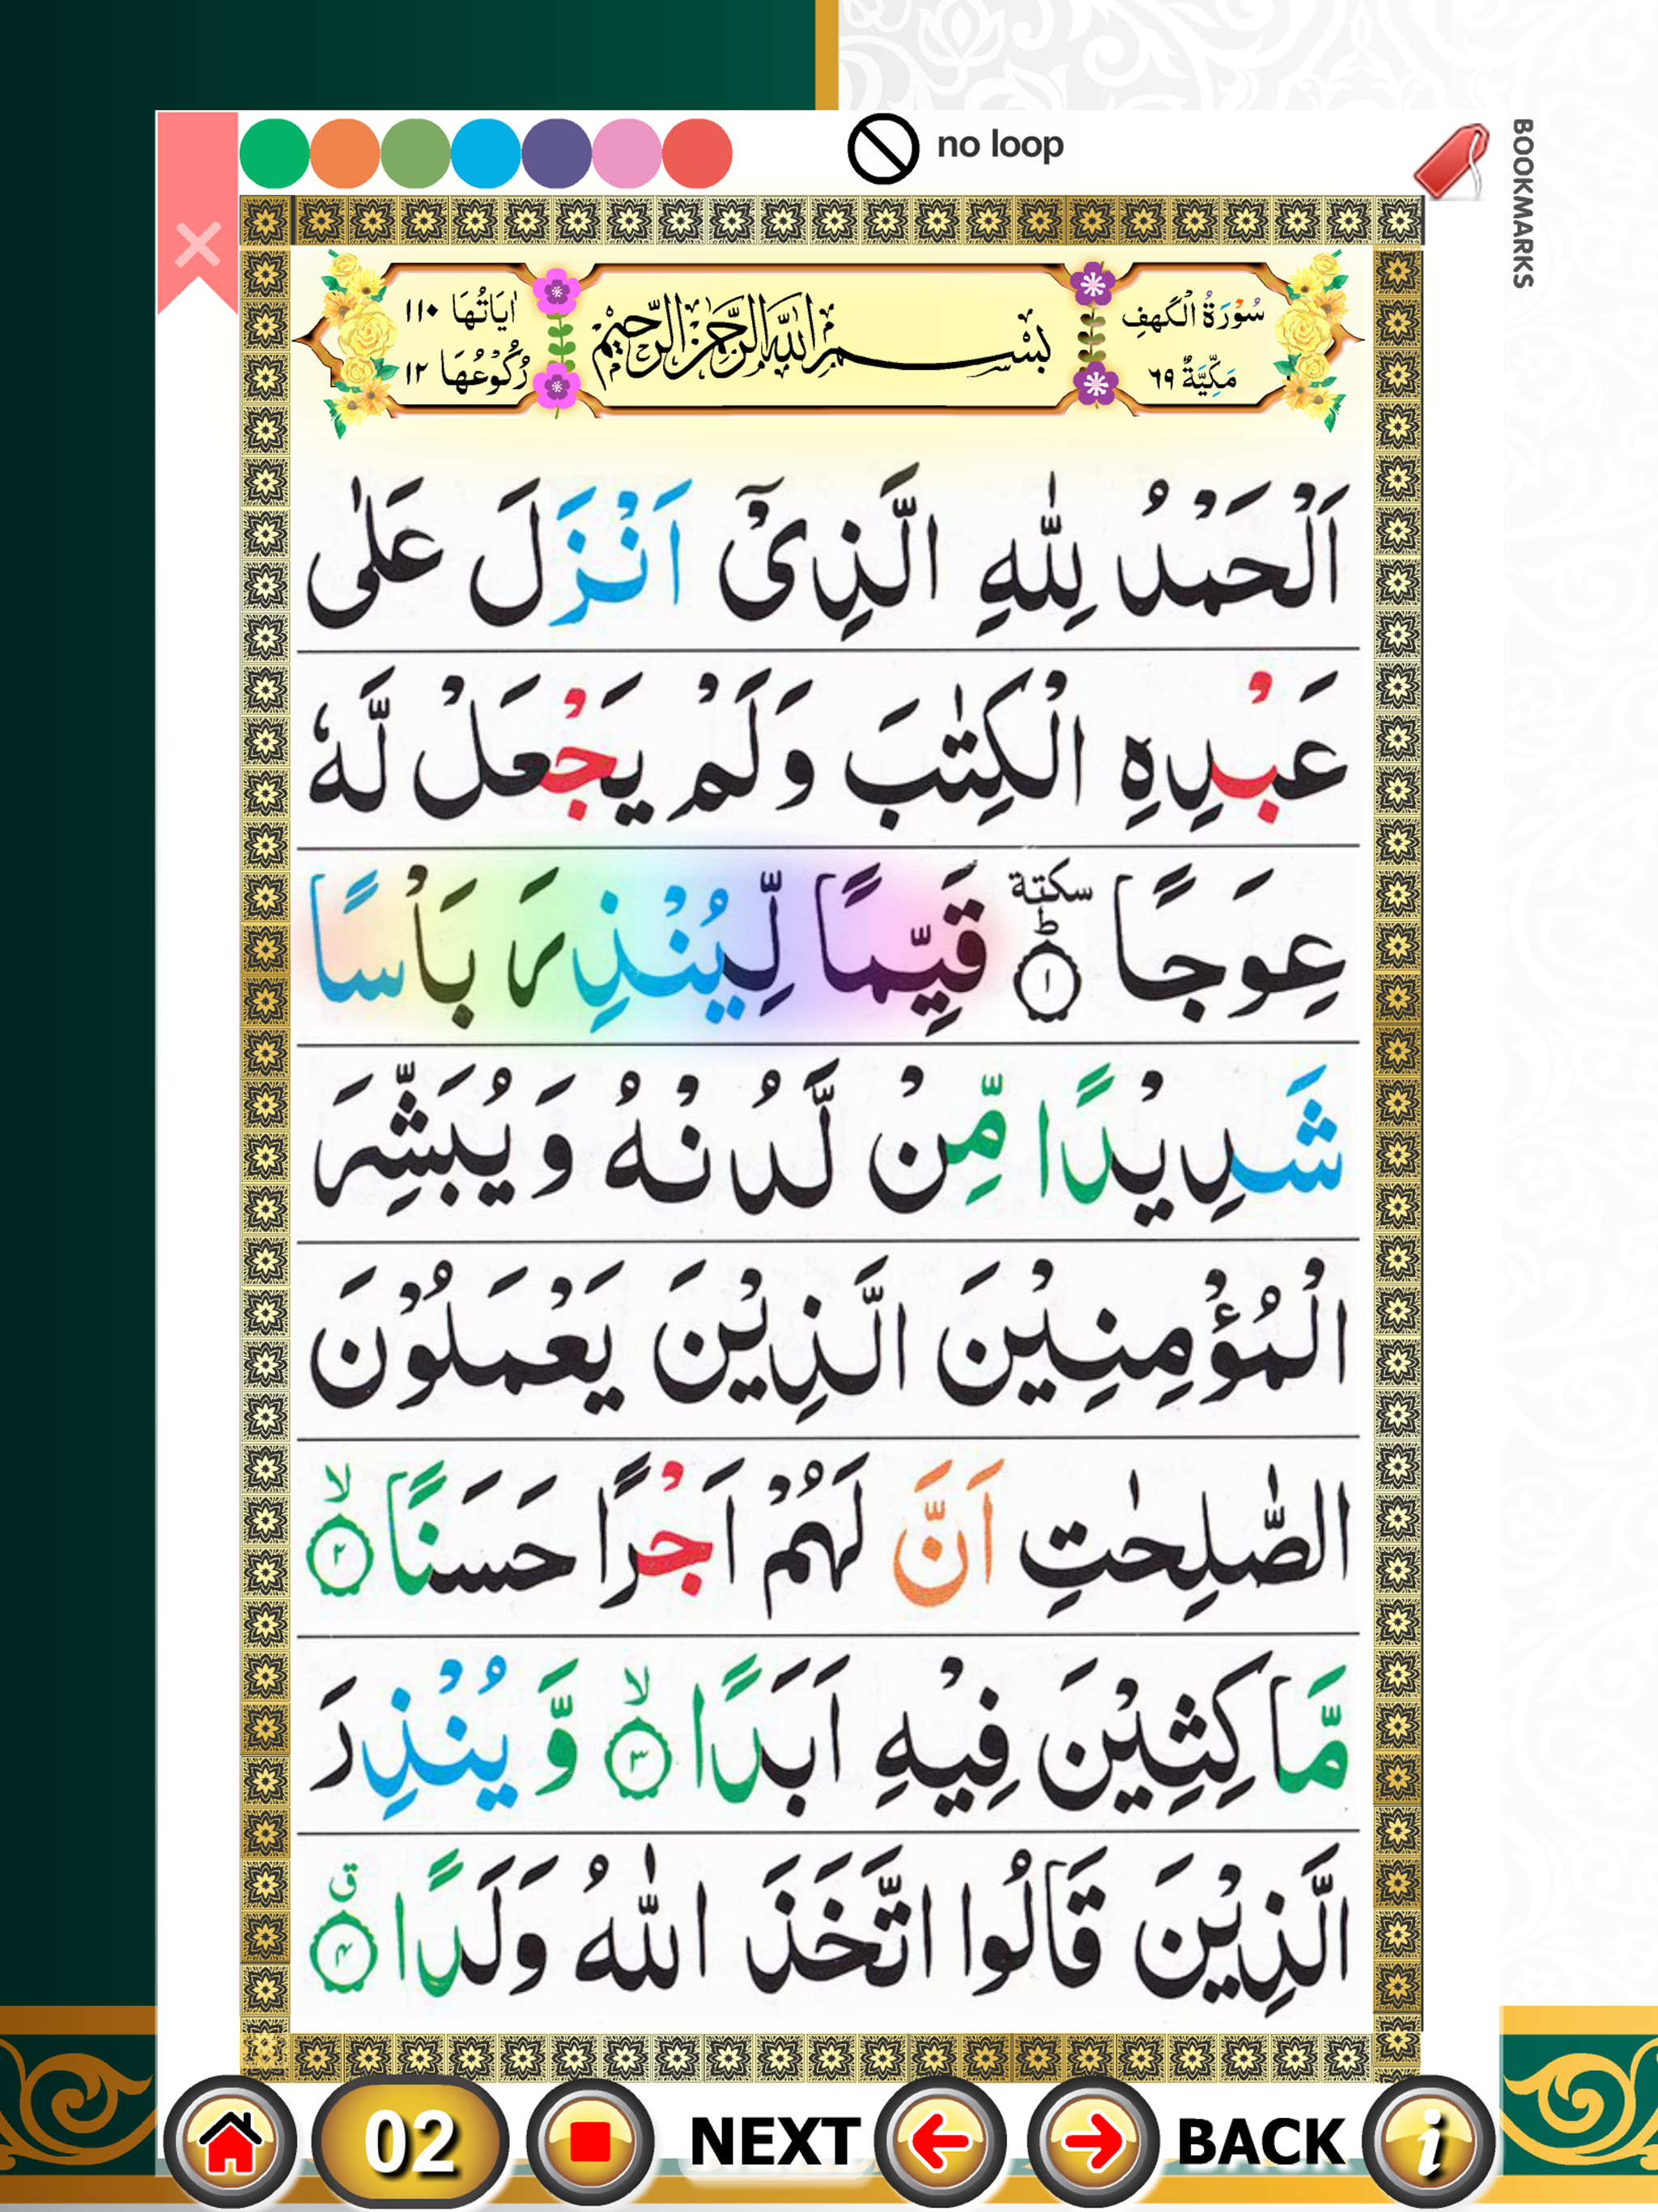 no loop
BOOKMARKS
سُوْرَةُ الْكَهفِ
مَكِّيَّةٌ ٦٩
بسم الله الرحمن الرحيم
اٰيَاتُهَا ١١٠
رُكُوْعُهَا ١٢
اَلْحَمْدُ لِلّٰهِ الَّذِىْۤ اَنْزَلَ عَلٰى
عَبْدِهِ الْكِتٰبَ وَلَمْ يَجْعَلْ لَّهٗ
عِوَجًا ؕ سكتة ١ قَيِّمًا لِّيُنْذِرَ بَاْسًا
شَدِيْدًا مِّنْ لَّدُنْهُ وَيُبَشِّرَ
الْمُؤْمِنِيْنَ الَّذِيْنَ يَعْمَلُوْنَ
الصّٰلِحٰتِ اَنَّ لَهُمْ اَجْرًا حَسَنًا ۙ ٢
مَّاكِثِيْنَ فِيْهِ اَبَدًا ۙ ٣ وَّيُنْذِرَ
الَّذِيْنَ قَالُوا اتَّخَذَ اللّٰهُ وَلَدًا ق ٤
02 NEXT BACK i